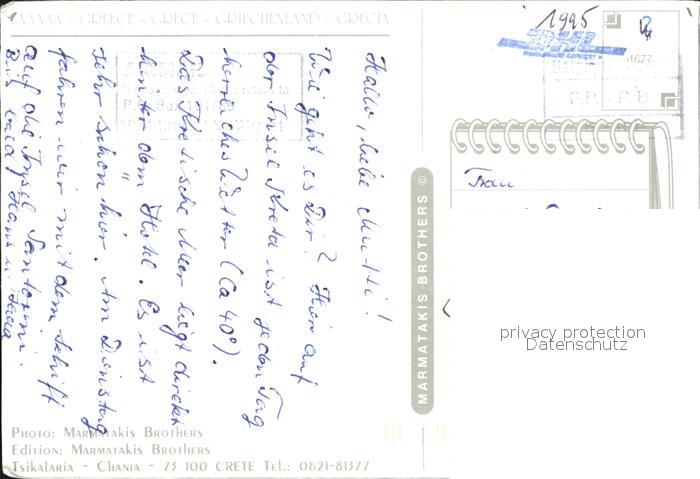 ΕΛΛΑΔΑ - GREECE - GRECE - GRIECHENLAND - GRECIA
1995
1677
P.P.
Hallo, liebe Mutti!
Wie geht es Dir? Hier auf
der Insel Kreta ist jeden Tag
herrliches Wetter (Ca 40°).
Das Kretische Meer liegt direkt
hinter dem Hotel. Es ist
sehr schön hier. Am Dienstag
fahren wir mit dem Schiff
auf die Insel Santorini.
Bis bald, Hans u.
Frau
MARMATAKIS BROTHERS ©
privacy protection
Datenschutz
PHOTO: MARMATAKIS BROTHERS
Edition: MARMATAKIS BROTHERS
Tsikalaria - Chania - 73 100 CRETE Tel.: 0821-81377